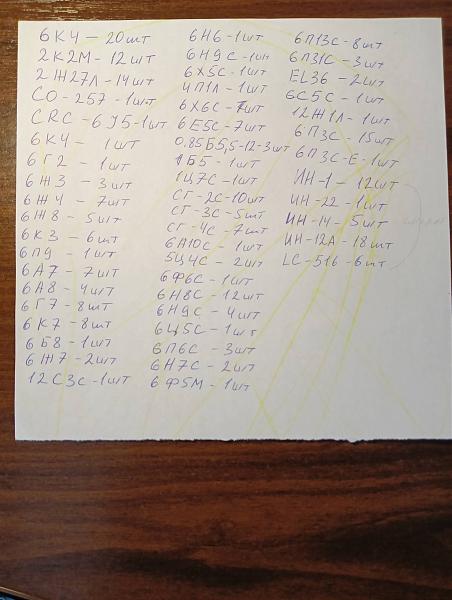 6К4 - 20шт
2К2М - 12шт
2Ж27Л - 14шт
СО-257 - 1шт
CRC - 6J5-1шт
6К4 - 1шт
6Г2 - 1шт
6Ж3 - 3шт
6Ж4 - 7шт
6Ж8 - 5шт
6К3 - 6шт
6П9 - 1шт
6А7 - 7шт
6А8 - 4шт
6Г7 - 8шт
6К7 - 8шт
6Б8 - 1шт
6Ж7 - 2шт
12С3С - 1шт
6Н6 - 1шт
6Н9С - 1шт
6Х5С - 1шт
4П1Л - 1шт
6Х6С - 7шт
6Е5С - 7шт
0.85Б5,5-12-3шт
1Б5 - 1шт
1Ц7С - 1шт
СГ-2С-10шт
СГ-3С-5шт
СГ-4С-7шт
6А10С - 1шт
5Ц4С - 2шт
6Ф6С - 1шт
6Н8С - 12шт
6Н9С - 4шт
6Ц5С - 1шт
6П6С - 3шт
6Н7С - 2шт
6Ф5М - 1шт
6П13С - 8шт
6П31С - 3шт
EL36 - 2шт
6С5С - 1шт
12Ж1Л - 1шт
6П3С - 15шт
6П3С-Е-1шт
ИН-1 - 12шт
ИН-22 - 1шт
ИН-14 - 5шт
ИН-12А - 18шт
LC-516 - 6шт